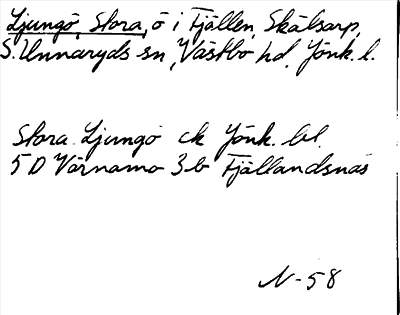 Ljungö, Stora, ö i Fjällen, Skålsarp,
S. Unnaryds sn, Västbo hd, Jönk. l.
Stora Ljungö ek Jönk. bl.
5 D Värnamo 3b Fjällandsnäs
N-58